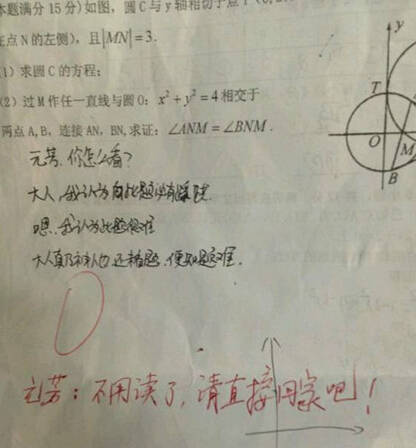 本题满分 15 分)如图，圆 C 与 y 轴相切于点 T(0, 2
在点 N 的左侧)，且|MN|=3.
(1) 求圆 C 的方程;
(2) 过 M 作任一直线与圆 O: x²+y²=4 相交于
两点 A, B，连接 AN，BN, 求证: ∠ANM=∠BNM.
y
T
O
M
B
元芳,你怎么看?
大人,我认为此题
嗯,我认为此题很难
大人真乃神人也,还未看题,便知题难.
0
元芳：不用读了,请直接回家吧！